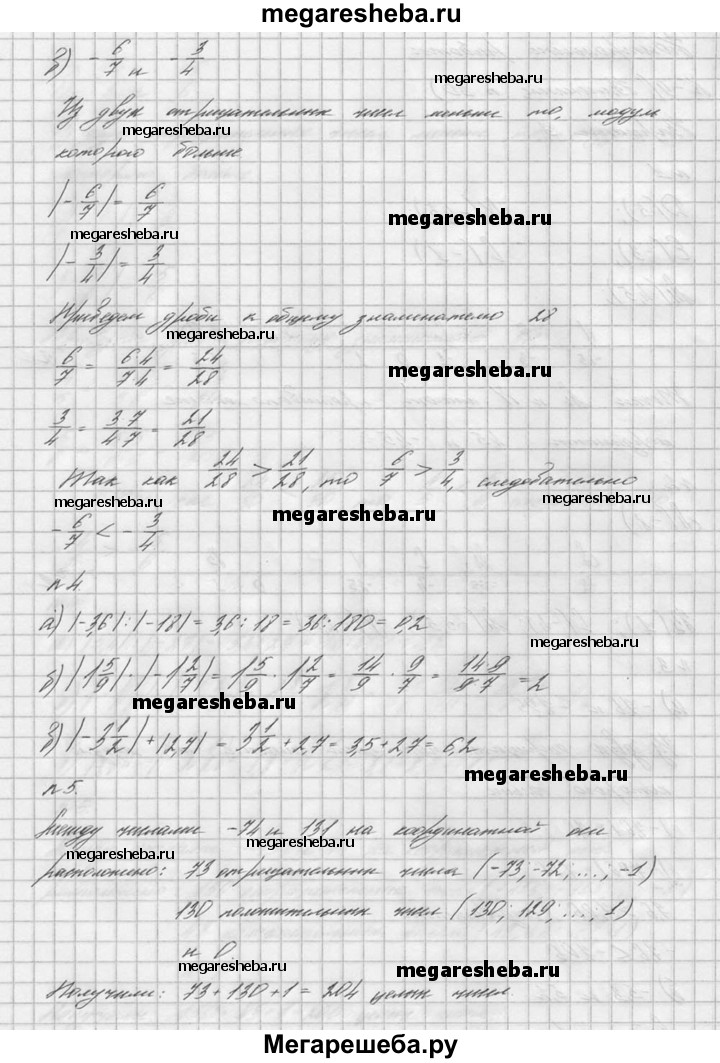 megaresheba.ru
в) -6/7 и -3/4
megaresheba.ru
Из двух отрицательных чисел меньше то, модуль
megaresheba.ru
которого больше
|-6/7| = 6/7
megaresheba.ru
megaresheba.ru
|-3/4| = 3/4
Приведем дроби к общему знаменателю 28
megaresheba.ru
6/7 = 6·4/7·4 = 24/28
megaresheba.ru
3/4 = 3·7/4·7 = 21/28
Так как 24/28 > 21/28, то 6/7 > 3/4, следовательно
megaresheba.ru
megaresheba.ru
megaresheba.ru
-6/7 < -3/4
№4
а) |-3,6| : |-18| = 3,6 : 18 = 36 : 180 = 0,2
megaresheba.ru
б) |1 5/9| · |-1 2/7| = 1 5/9 · 1 2/7 = 14/9 · 9/7 = 14·9/9·7 = 2
megaresheba.ru
в) |-3 1/2| + |2,7| = 3 1/2 + 2,7 = 3,5 + 2,7 = 6,2
megaresheba.ru
№5.
Между числами -74 и 131 на координатной оси
megaresheba.ru
расположено: 73 отрицательных числа (-73; -72; ...; -1)
130 положительных чисел (130; 129; ..., 1)
и 0.
megaresheba.ru
megaresheba.ru
Получили: 73 + 130 + 1 = 204 целых чисел
Мегарешеба.ру